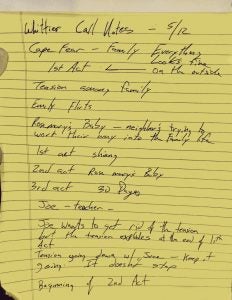 Whittier Call Notes - 5/12
Cape Fear - Family Everything
Looks fine
1st Act on the outside
Tension among family
Emily Flirts
Rosemary's Baby - neighbors trying to
work their way into the family life
1st act
2nd act Rosemary's Baby
3rd act 30 Days
Joe - teacher -
Joe wants to get rid of the tension
but the tension explodes at the end of 1st
Act
Tension going down w/ - Keep it
going. It doesn't stop
Beginning of 2nd Act